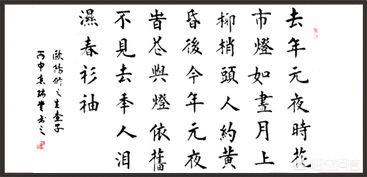 去年元夜時花
市燈如晝月上
柳梢頭人約黄
昏後今年元夜
旹花與燈依舊
不見去秊人泪
濕春衫袖
歐陽修之生查子
丙申